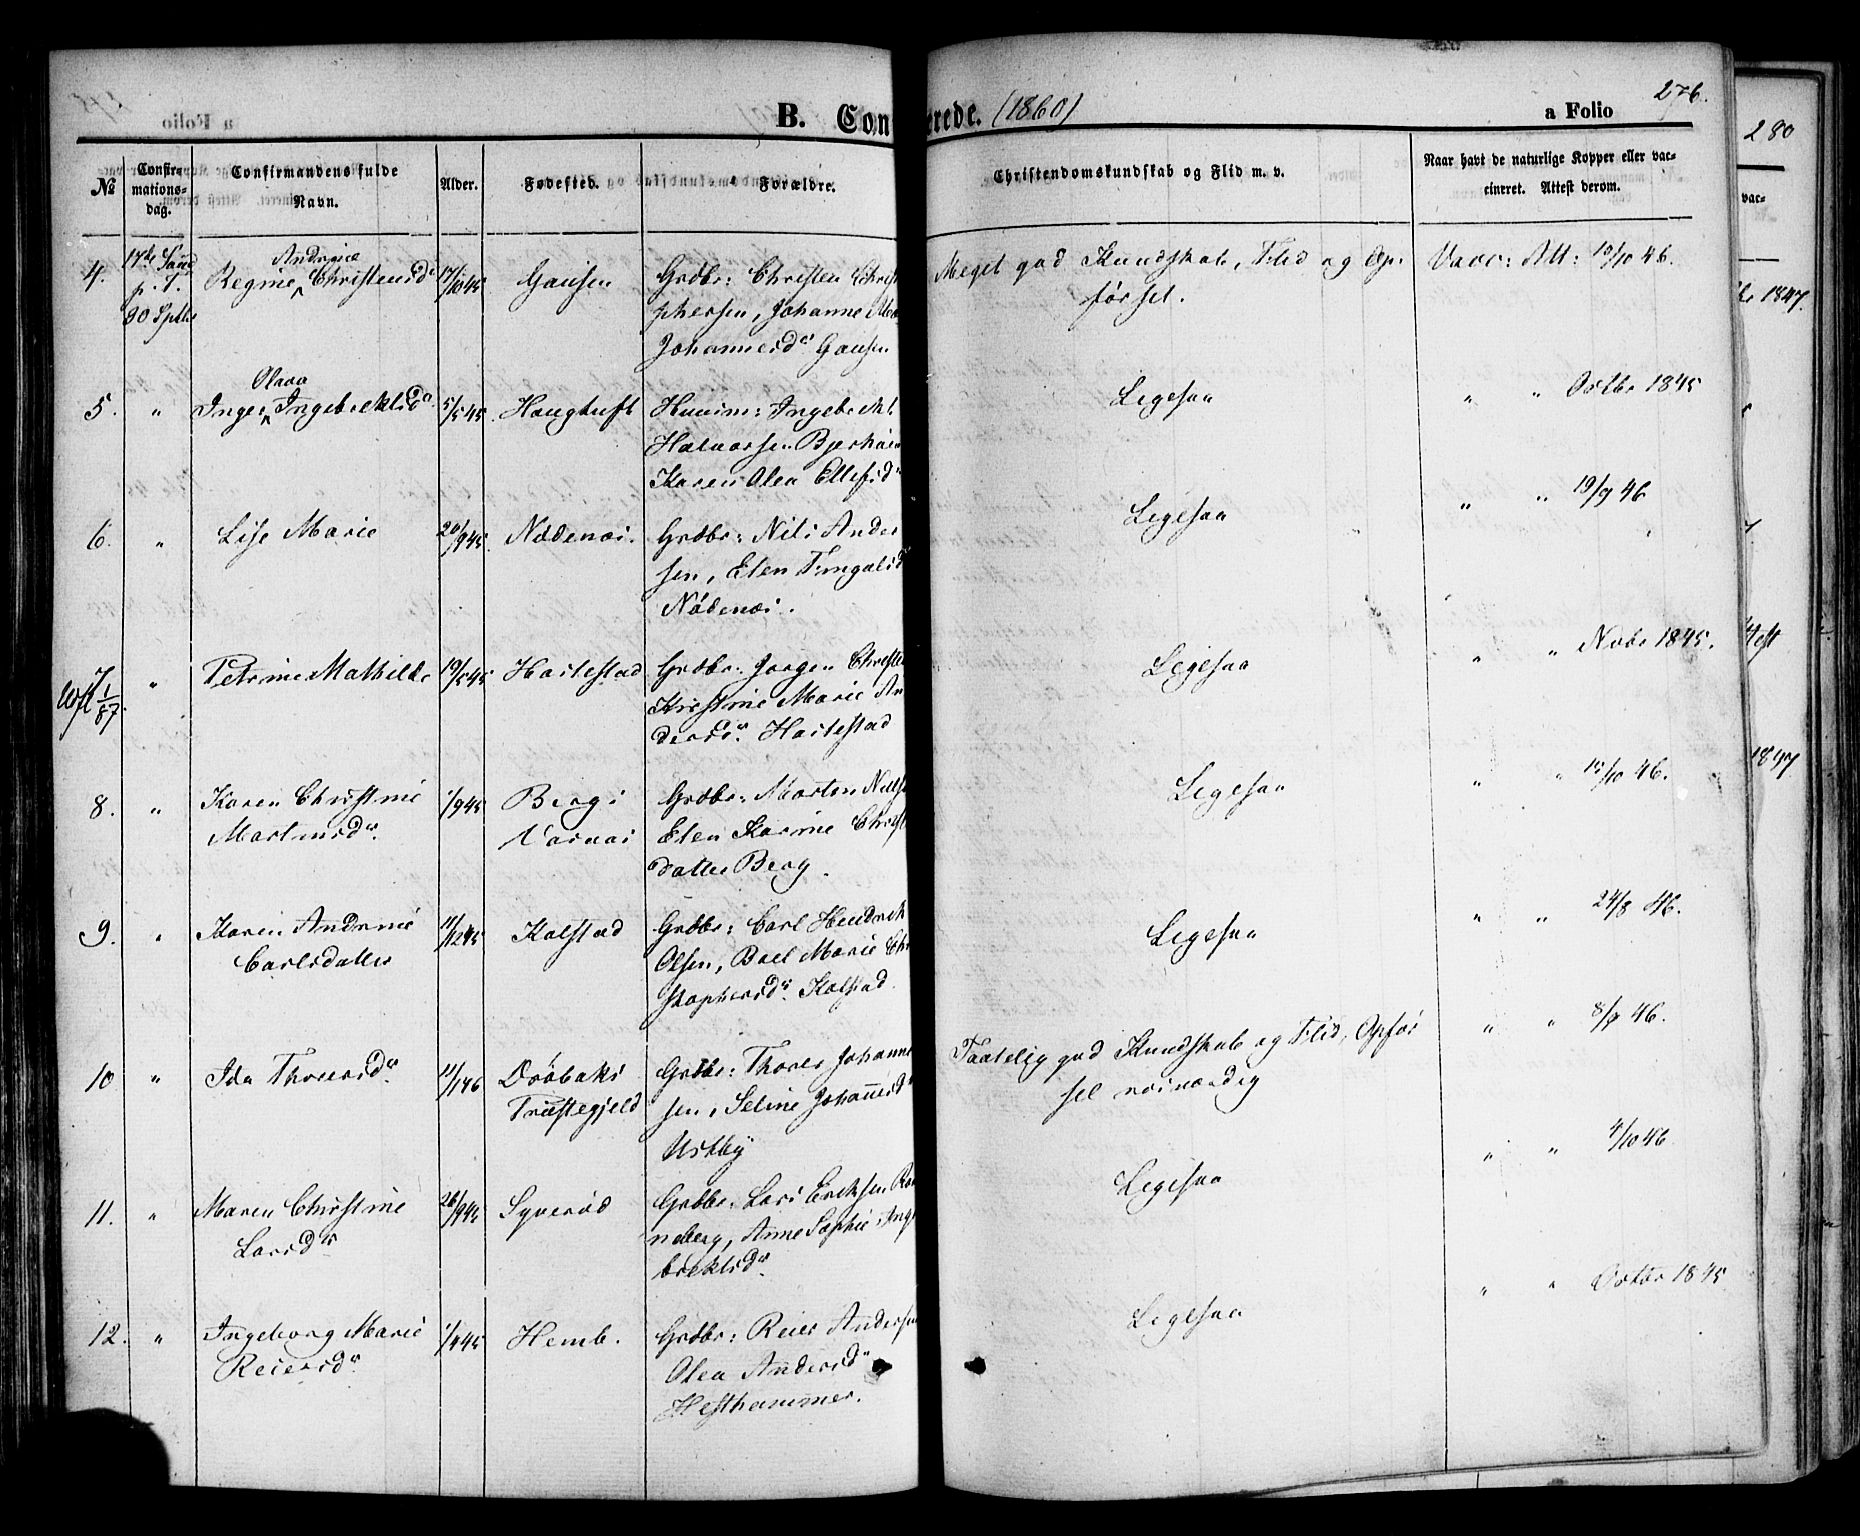 B. Con
erede. (1860)
a Folio
276.
280
№
Confir-
mations-
dag.
Confirmandens fulde
Navn.
Alder.
Fødested.
Forældre.
Christendomskundskab og Flid m. v.
Naar havt de naturlige Kopper eller vac-
cineret. Attest derom.
vac-
4.
17de Sønd
p. T.
30 Septbr
Andrine
Regine Christensdr
17/10 45
Gausen
Grdbr: Christen Christ
phersen, Johanne
Johannesdr Gausen
Meget god Kundskab, Flid og Op-
førsel.
Vacc: Att: 10/10 46.
1847.
5.
"
Olava
Inger Ingebrektsdr
5/5 45.
Haugtuft
Huusm: Ingebrekt
Halvorsen
Karen Olea Ellefsd
Ligesaa
" " Octbr 1845
6.
"
Lise Marie
20/9 45.
Nødenæs.
Grdbr: Nils Ander
sen, Elen
Nødenæs.
Ligesaa
" " 19/9 46
7
"
Petrine Mathilde
19/5 45
Harlestad
Grdbr: Jørgen Christen
Kristine Marie An
dersdr. Harlestad
Ligesaa
" " Novbr 1845.
1/87.
8.
"
Karen Christine
Martinsd.
1/9 45
Berg i
Grdbr: Morten Niels
Elen Karine Christ
datter Berg.
Ligesaa
" " 15/10 46.
1847
9.
"
Karen Andrine
Carlsdatter
11/12 45
Kolstad
Grdbr: Carl Hendrik
Olsen, Boel Marie Chri
stophersdr. Kolstad.
Ligesaa
" " 24/8 46.
10
"
Ida Thoresdr.
11/1 46
Drøbaks
Præstegjeld
Grdbr: Thorer Johanne
sen, Seline Johannesd
Ustby
Taalelig god Kundskab og Flid, Opfør
sel
" " 8/9 46.
11.
"
Maren Christine
Larsdr
26/9 45
Syverød
Grdbr: Lars Eriksen Ran
neberg, Anne Sophie Inge
brektsdr.
Ligesaa
" " 4/10 46
12.
"
Ingeborg Marie
Reiersdr
1/4 45
Hemb.
Grdbr: Reier Andersen
Olea Andersdr
Hesthammer.
Ligesaa
" " Octbr 1845